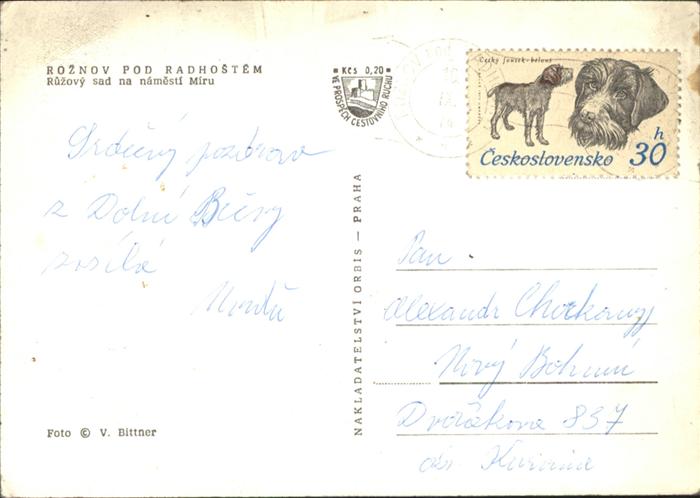 ROŽNOV POD RADHOŠTĚM
Růžový sad na náměstí Míru
Kčs 0,20
VE PROSPĚCH CESTOVNÍHO RUCHU
Český fousek - belouš
Československo 30 h
Srdečný pozdrav
z Dolní Bečvy
zasílá
NAKLADATELSTVÍ ORBIS — PRAHA
Pan
Alexandr
Nový Bohumí
Dvořákova 837
okr. Karviná
Foto © V. Bittner